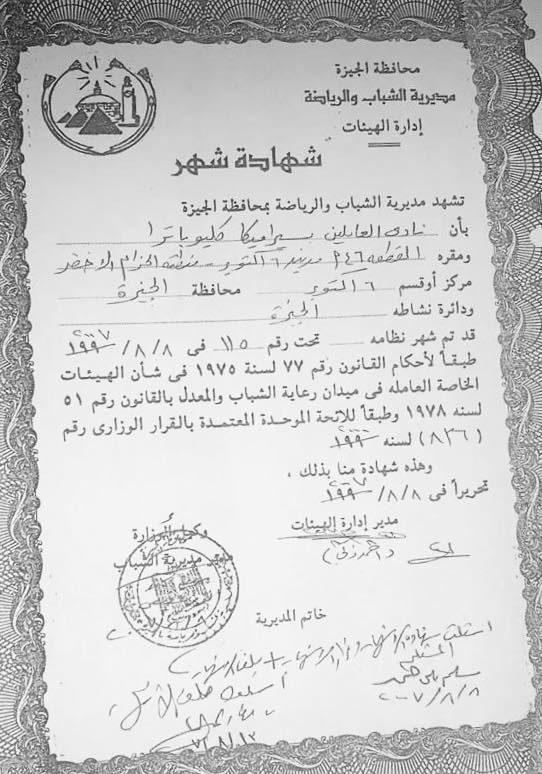 محافظة الجيزة
مديرية الشباب والرياضة
إدارة الهيئات
شهادة شهر
تشهد مديرية الشباب والرياضة بمحافظة الجيزة
بأن نادى العاملين بسيراميكا كليوباترا
ومقره القطعه ٢٤٦ مدينة ٦ أكتوبر منطقة الحزام الاخضر
مركز أوقسم ٦ اكتوبر محافظة الجيزة
ودائرة نشاطه الجيزة
قد تم شهر نظامه تحت رقم ١١٥ فى ٨/٨/٢٠٠٧
طبقاً لأحكام القانون رقم ٧٧ لسنة ١٩٧٥ فى شأن الهيئات
الخاصة العامله فى ميدان رعاية الشباب والمعدل بالقانون رقم ٥١
لسنه ١٩٧٨ وطبقاً للائحة الموحدة المعتمدة بالقرار الوزارى رقم
(٨٣٦) لسنه ٢٠٠٠
وهذه شهادة منا بذلك ،
تحريراً فى ٨/٨/٢٠٠٧
مدير إدارة الهيئات
وكيل الوزارة
مدير مديرية الشباب
خاتم المديرية
استلمت
المستلم
٢٠٠٧/٨/٨